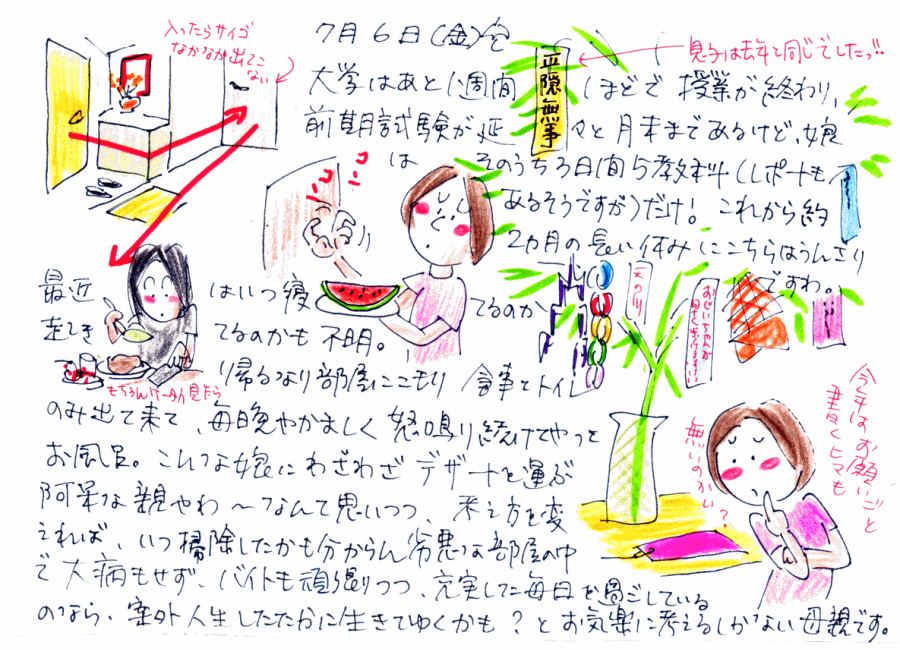 7月6日(金)空
大学はあと1週間ほどで授業が終わり、
前期試験が延々と月末まであるけど、娘
はそのうち3日間5教科(レポートも
あるそうですが)だけ! これから約
2カ月の長い休みにこちらはうんざり
ですわ。
最近はいつ寝てるのか
起きてるのかも不明。
帰るなり部屋にこもり食事とトイレ
のみ出て来て、毎日晩やかましく怒鳴り続けてやっと
お風呂。こんな娘にわざわざデザートを運ぶ
阿呆な親やわ〜なんて思いつつ、考え方を変
えれば、いつ掃除したかも分からん劣悪な部屋の中
で大病もせず、バイトも頑張りつつ、充実した毎日を過ごしている
のなら、案外人生したたかに生きてゆくかも?とお気楽に考えるしかない母親です。
入ったらサイゴ
なかなか出てこ
ない
平隠無事
息子は去年と同じでしたっ!!
コン
コン
天の川
おじいちゃんが
今年はお願いごと
書くヒマも
無いのかい?